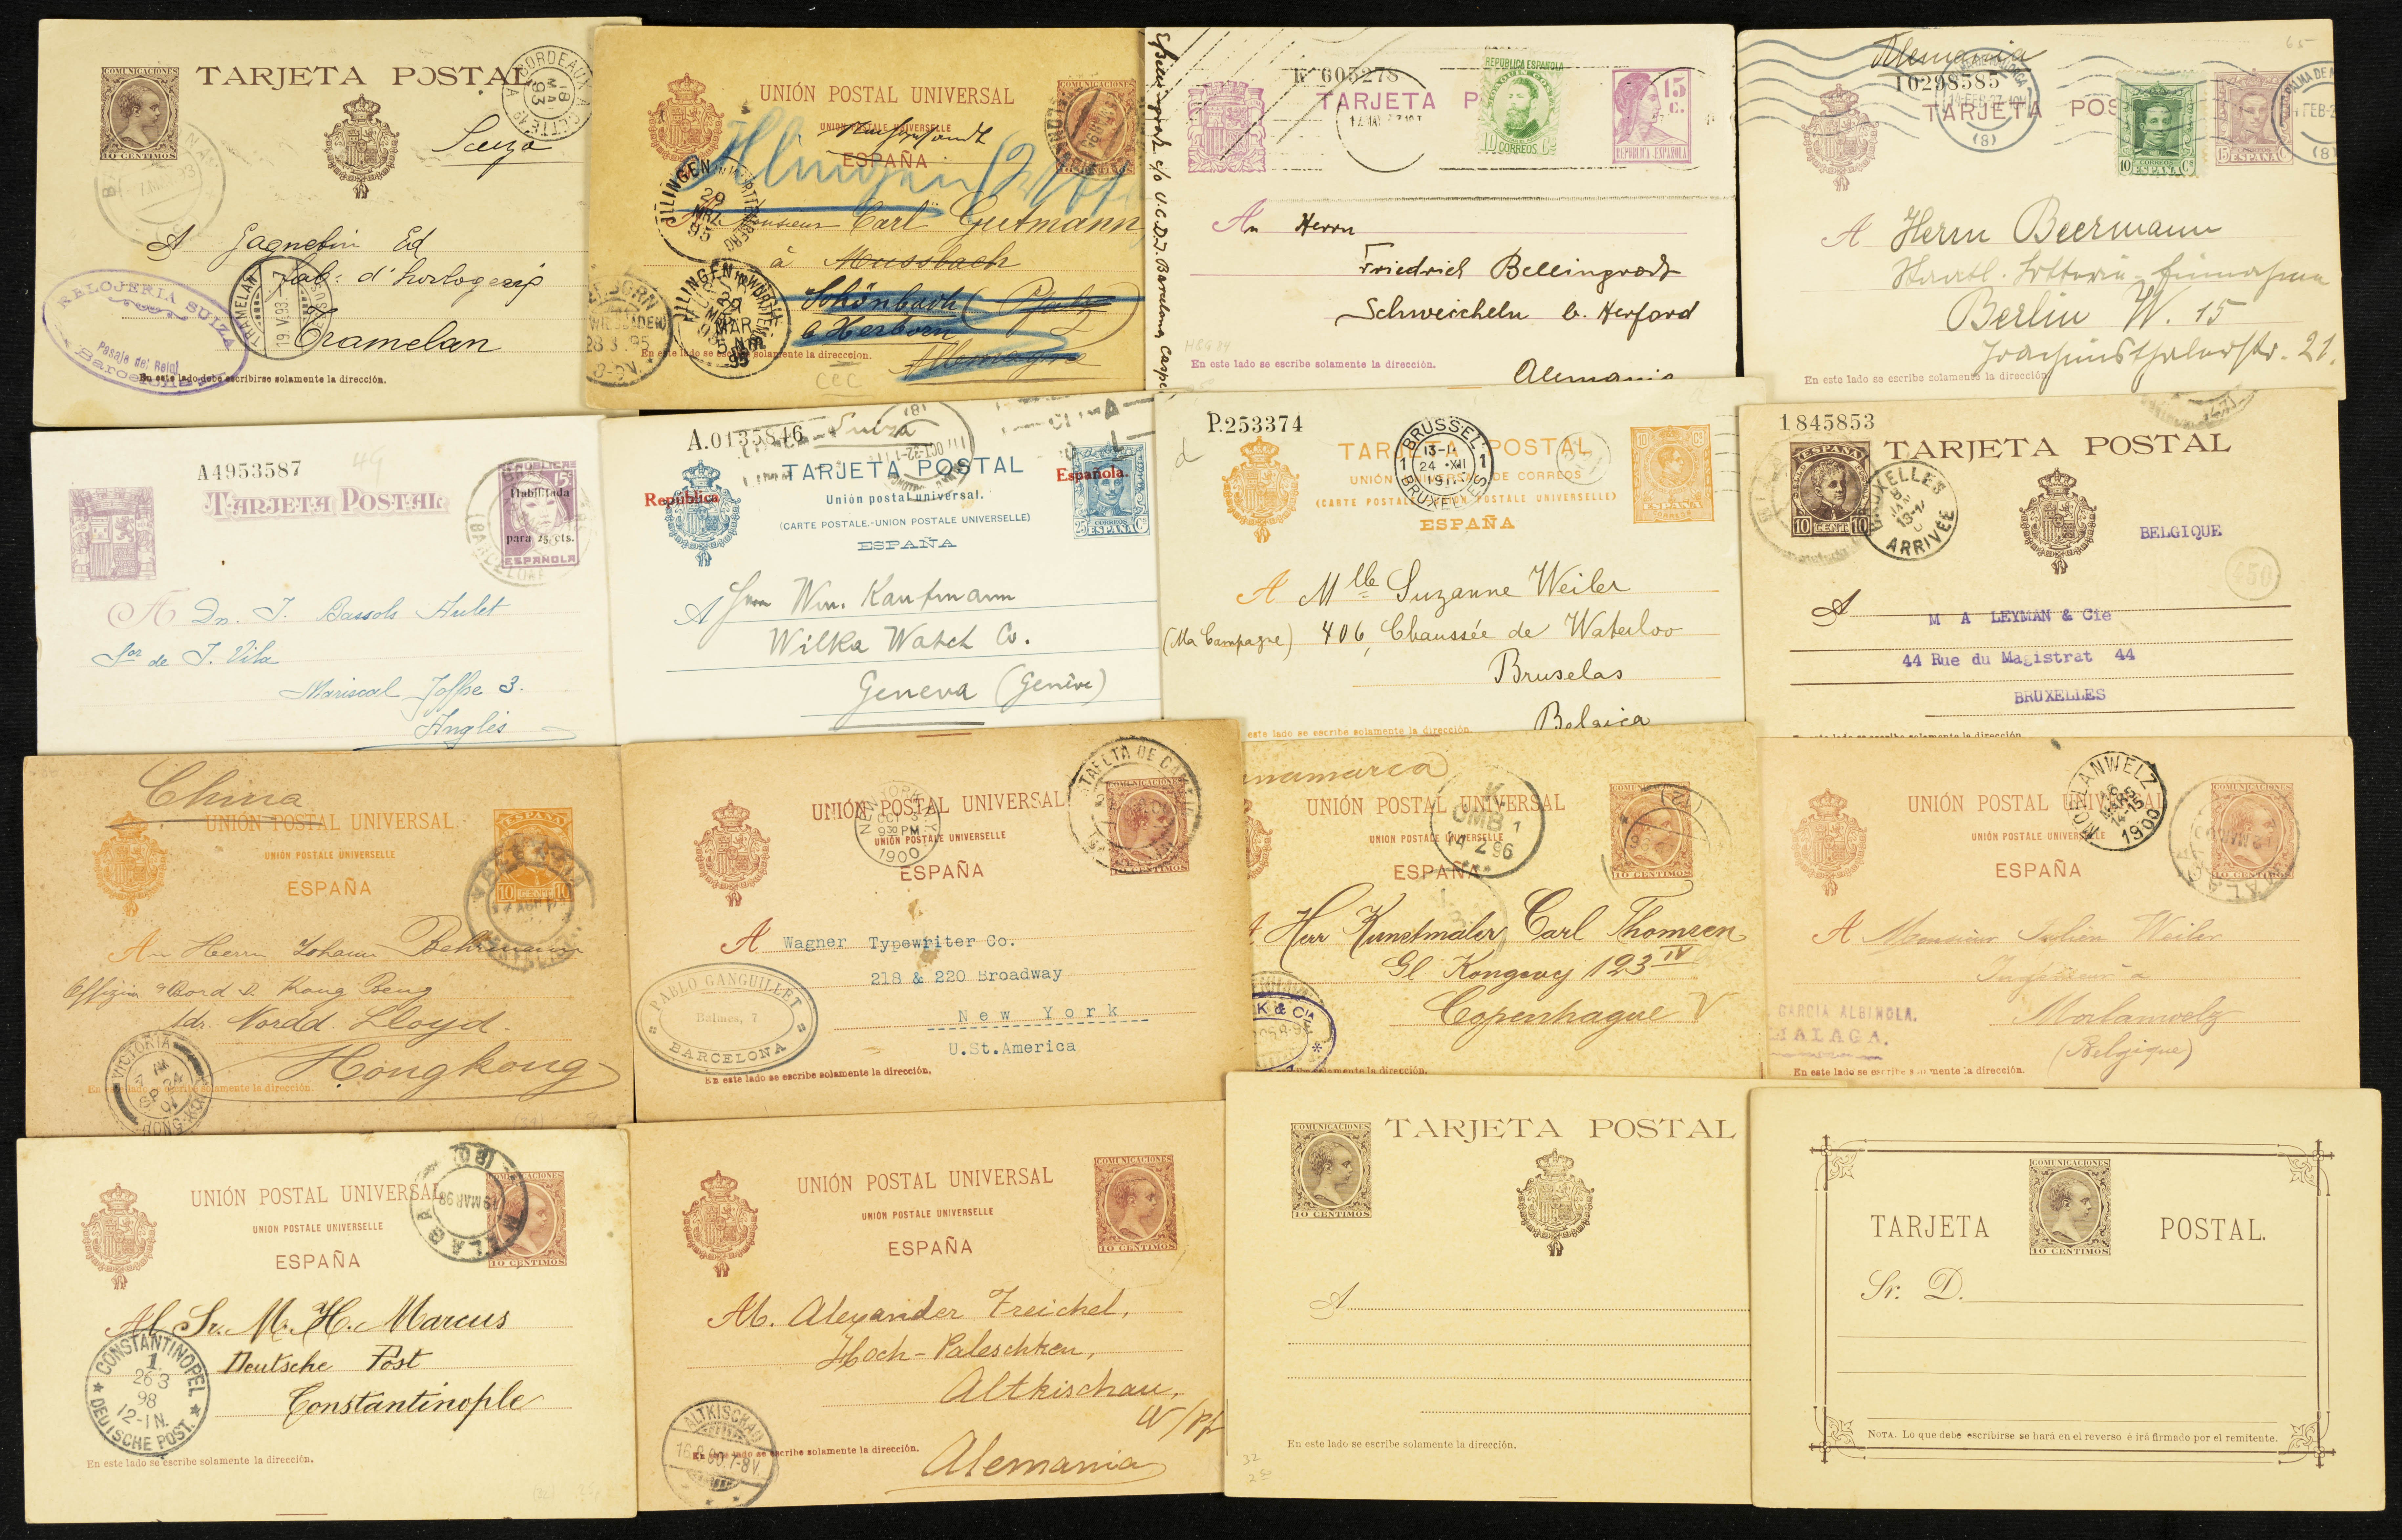 COMUNICACIONES
10 CENTIMOS
TARJETA POSTAL
BORDEAUX A CETTE
18
MAI
93
Suiza
A Gagnebin Ed
fab: d'horlogerie
Tramelan
TRAMELAN
19.V.93.-7
RELOJERIA SUIZA
Pasaje del Reloj
Barcelona
En este lado debe escribirse solamente la dirección.
UNIÓN POSTAL UNIVERSAL
UNION POSTALE UNIVERSELLE
ESPAÑA
Illingen
ILLINGEN
WÜRTTEMBERG
29
MRZ
95
Monsieur Carl Gutmann
à Mussbach
Schönbach (Pfalz)
b Herborn
Allemagne
HERBORN
(WIESBADEN)
28 3 95
8-9V.
ILLINGEN
WÜRTTEMB
MAR
95
En este lado se escribe solamente la direccion.
CCC
Bellingrodt c/o U.C.D.J. Barcelona, Caspe
K 605278
TARJETA P
REPUBLICA ESPAÑOLA
10 CORREOS Cs
15
C.
REPUBLICA ESPAÑOLA
An Herrn
Friedrich Bellingrodt
Schweicheln b. Herford
H&G 84
En este lado se escribe solamente la dirección.
Alemania
Alemania
65
10298585
TARJETA POS
10 CORREOS Cs
ESPAÑA
15 ESPAÑA Cs
PALMA DE M
FEB-2
(8)
(8)
A Herrn Beermann
Staatl. Lotterie-Einnahme
Berlin W. 15
Joachimsthalerstr. 21.
En este lado se escribe solamente la dirección
A4953587
49
TARJETA POSTAL
REPUBLICA
15
Habilitada
para 25 cts.
ESPAÑOLA
(BARCELONA)
A Dn. J. Bassols Aulet
Sor de J. Vila
Mariscal Joffre 3.
Anglés
A.0135846
Suiza
TARJETA POSTAL
República
Española.
Unión postal universal.
(CARTE POSTALE.-UNION POSTALE UNIVERSELLE)
ESPAÑA
25 CORREOS Cs
ESPAÑA
OCT-32-1
A Herrn Wm. Kaufmann
Wilka Watch Co.
Geneva (Genève)
P.253374
TARJETA POSTAL
UNIÓN UNIVERSAL DE CORREOS
(CARTE POSTALE-UNION POSTALE UNIVERSELLE)
ESPAÑA
10 Cs
ESPAÑA
CORREOS
BRUSSEL
1 1
24 -XII
191
BRUXELLES
A Mlle Suzanne Weiler
(Ma Campagne) 406, Chaussée de Waterloo
Bruselas
este lado se escribe solamente la dirección.
Belgica
1845853
ESPAÑA
10 CENT 10
TARJETA POSTAL
BRUXELLES
ARRIVÉE
BELGIQUE
450
A M A LEYMAN & Cie
44 Rue du Magistrat 44
BRUXELLES
En este lado se escribe solamente la dirección
China
UNIÓN POSTAL UNIVERSAL
UNION POSTALE UNIVERSELLE
ESPAÑA
ESPAÑA
10 CENT 10
VALENCIA
An Herrn Johann Behrmann
Offizier a Bord D. Kong Beng
ldr. Nordd. Lloyd.
Hongkong
VICTORIA
SP 24
01
HONG-KONG
En este lado se escribe solamente la dirección.
UNIÓN POSTAL UNIVERSAL
UNION POSTALE UNIVERSELLE
ESPAÑA
NEW YORK
OCT 3
9 30 PM
1900
COMUNICACIONES
10 CENTIMOS
A Wagner Typewriter Co.
218 & 220 Broadway
New York
U.St.America
PABLO GANGUILLET
Balmes, 7
BARCELONA
En este lado se escribe solamente la dirección.
namarca
UNIÓN POSTAL UNIVERSAL
UNION POSTALE UNIVERSELLE
ESPAÑA
K
OMB 1
14 2 96
COMUNICACIONES
10 CENTIMOS
Herr Kunstmaler Carl Thomsen
Gl Kongevej 123 IV
Copenhague V
K & Cia
solamente la dirección.
UNIÓN POSTAL UNIVERSAL
UNION POSTALE UNIVERSELLE
ESPAÑA
MORLANWELZ
16
MARS
14-15
1900
COMUNICACIONES
10 CENTIMOS
MALAGA
A Monsieur Julien Weiler
Ingénieur a
Morlanwelz
(Belgique)
GARCIA ALBINOLA.
MALAGA.
En este lado se escribe solamente la dirección.
UNIÓN POSTAL UNIVERSAL
UNION POSTALE UNIVERSELLE
ESPAÑA
MALAGA
19 MAR 98
COMUNICACIONES
10 CENTIMOS
Al Sr. M. H. Marcus
Deutsche Post
Constantinople
CONSTANTINOPEL
1
26 3
98
12-1N.
DEUTSCHE POST.
En este lado se escribe solamente la dirección.
UNIÓN POSTAL UNIVERSAL
UNION POSTALE UNIVERSELLE
ESPAÑA
COMUNICACIONES
10 CENTIMOS
At. Alexander Treichel,
Hoch-Paleschken,
Altkischau,
W/Pr
Alemania
ALTKISCHAU
7-8V.
En este lado se escribe solamente la dirección.
COMUNICACIONES
10 CENTIMOS
TARJETA POSTAL
A
32
En este lado se escribe solamente la dirección.
COMUNICACIONES
10 CENTIMOS
TARJETA POSTAL.
Sr. D.
NOTA. Lo que debe escribirse se hará en el reverso é irá firmado por el remitente.